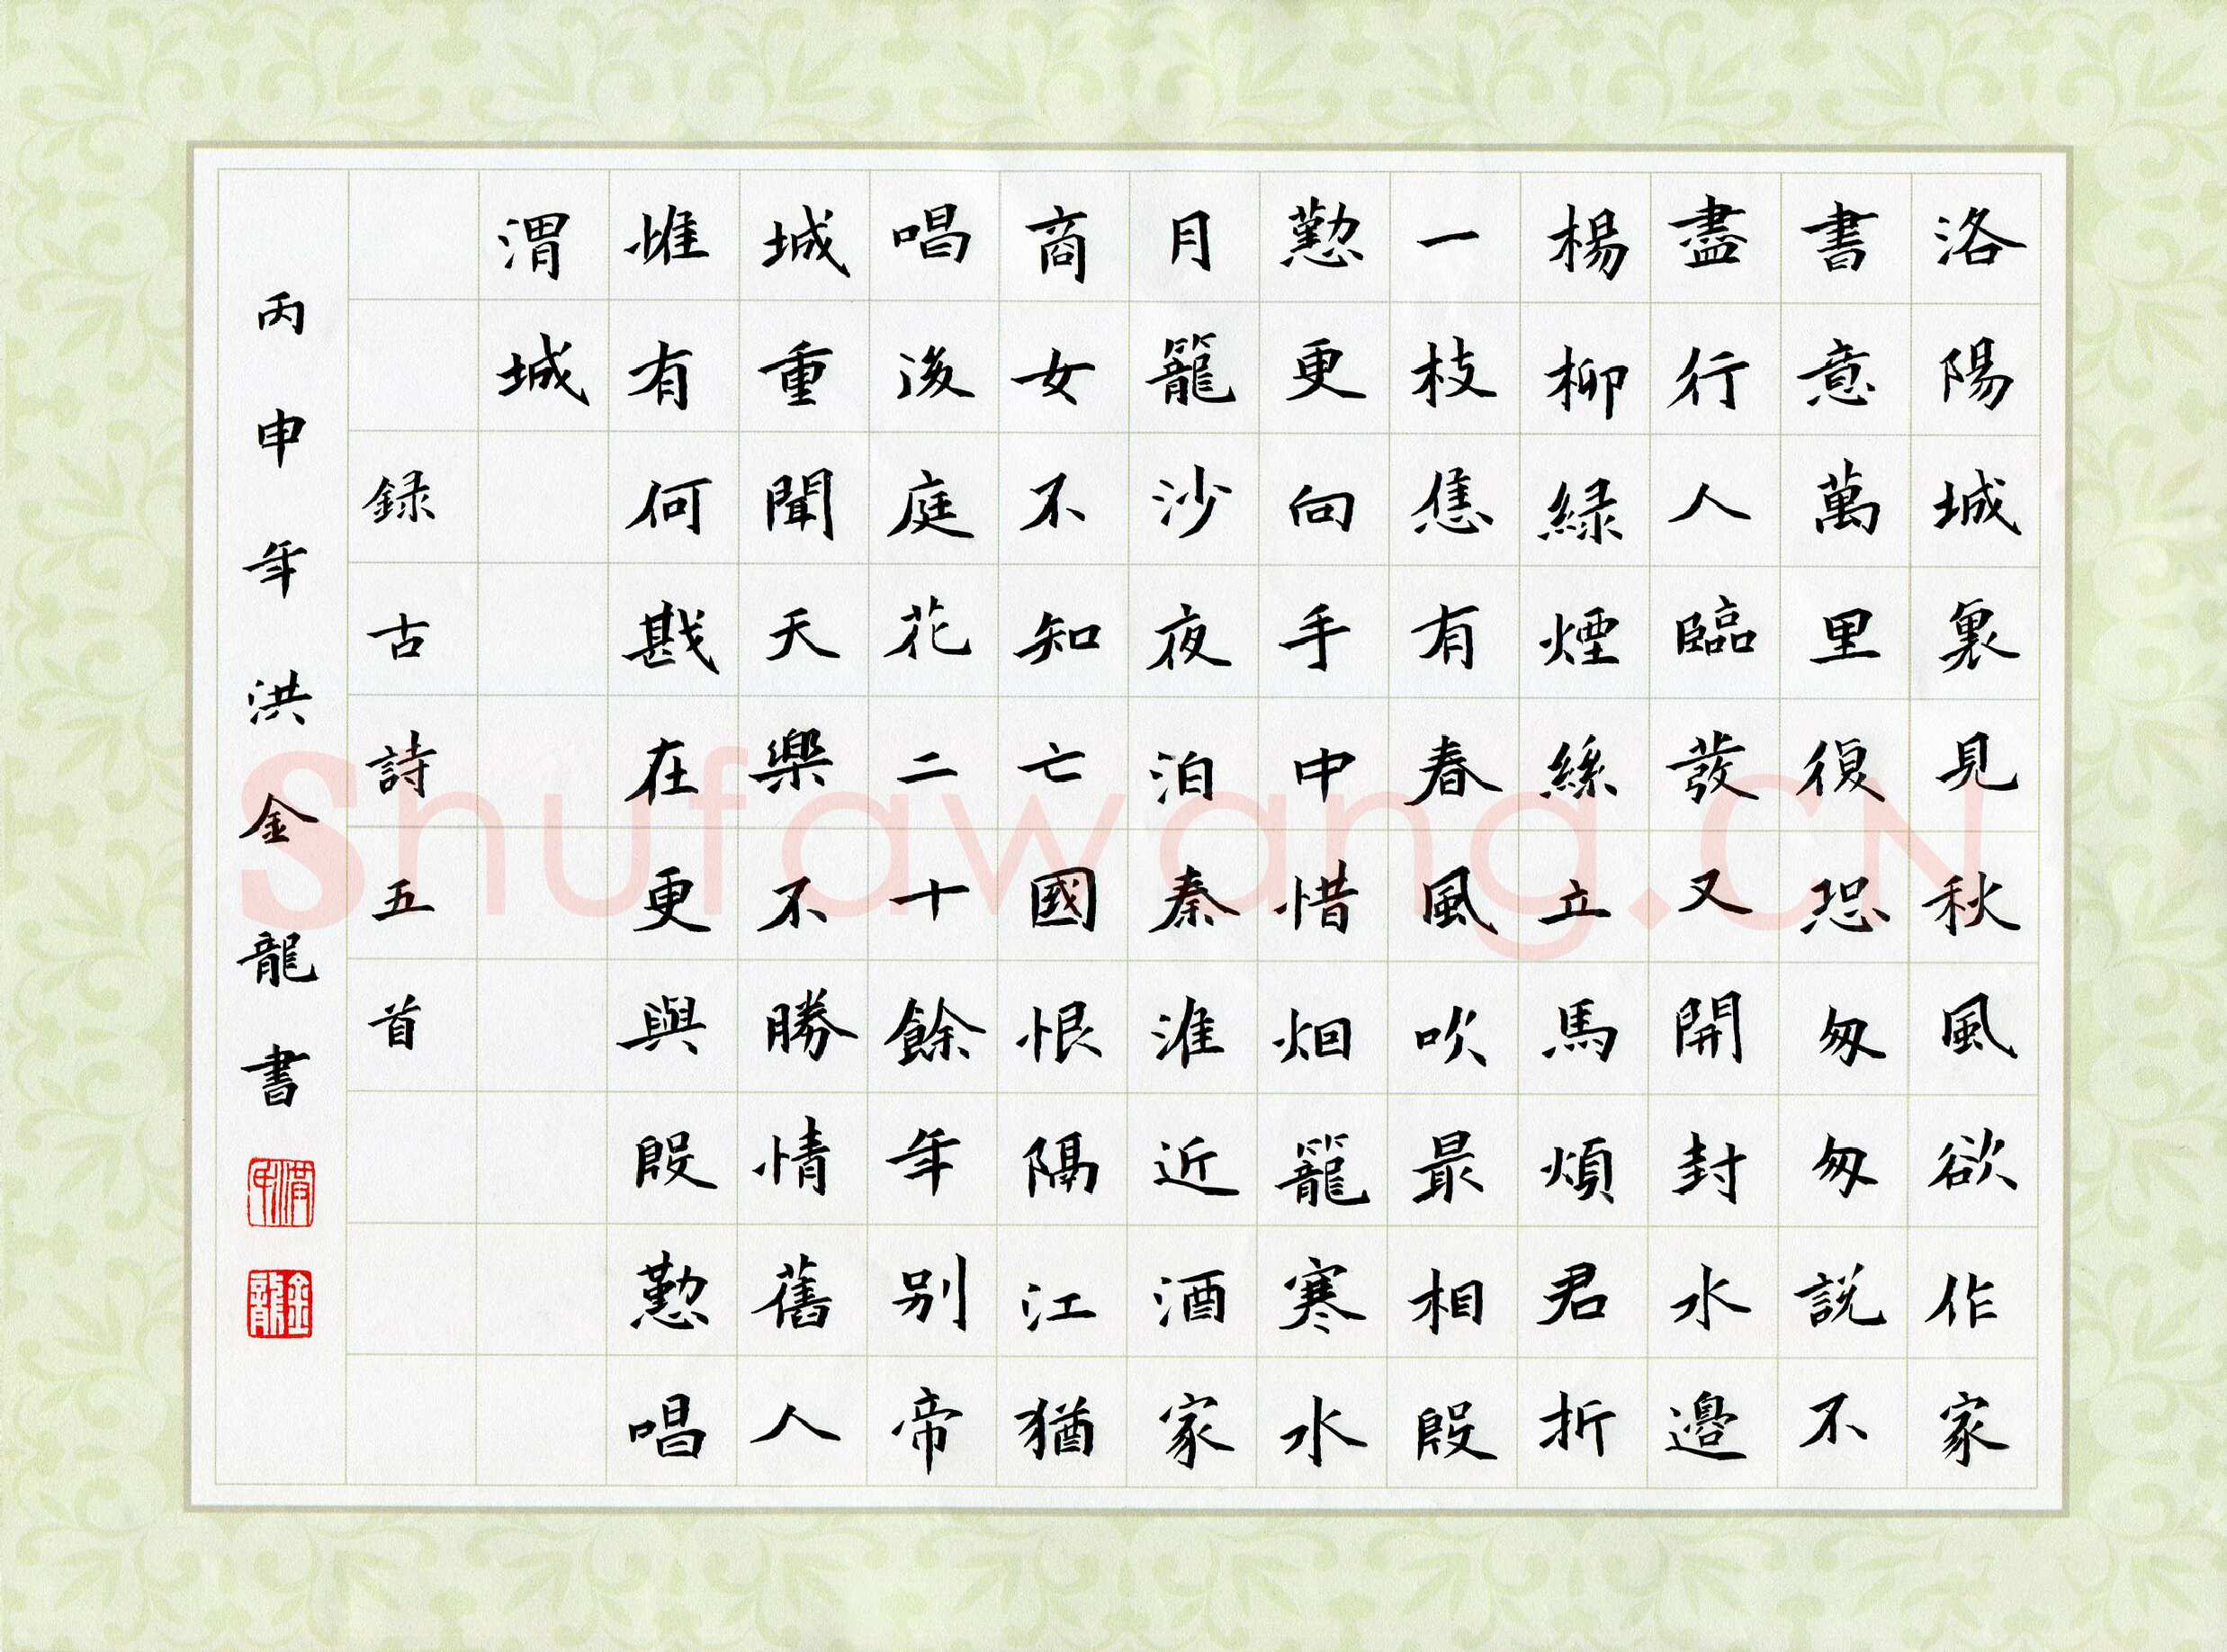 洛陽城裏見秋風欲作家
書意萬里復恐匆匆説不
盡行人臨發又開封水邊
楊柳緑煙絲立馬煩君折
一枝惟有春風吹最相殷
懃更向手中惜烟籠寒水
月籠沙夜泊秦淮近酒家
商女不知亡國恨隔江猶
唱後庭花二十餘年别帝
城重聞天樂不勝情舊人
惟有何戡在更與殷懃唱
渭城
録古詩五首
丙申年洪金龍書
金龍
Shufawang.CN